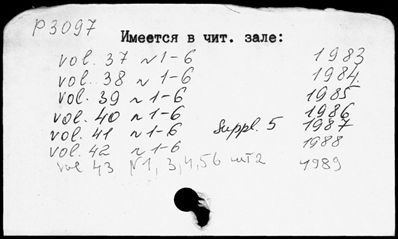 P3097
Имеется в чит. зале:
vol. 37 N 1-6 1983
vol. 38 N 1-6 1984
vol. 39 N 1-6 1985
vol. 40 N 1-6 1986
vol. 41 N 1-6 Suppl. 5 1987
vol. 42 N 1-6 1988
vol 43 N1, 3,4,56 1989